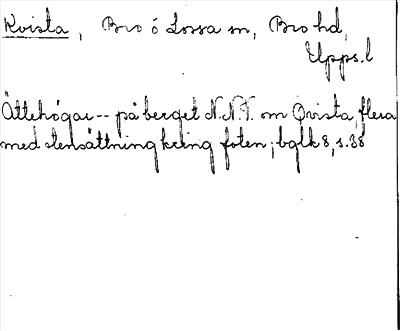 Kvista, Bro ó Lossa sn, Bro hd,
Upps. l
Ättehögar -- på berget N.N.V. om Qvista, flera
med stensättning kring foten; bglk 8, s. 38